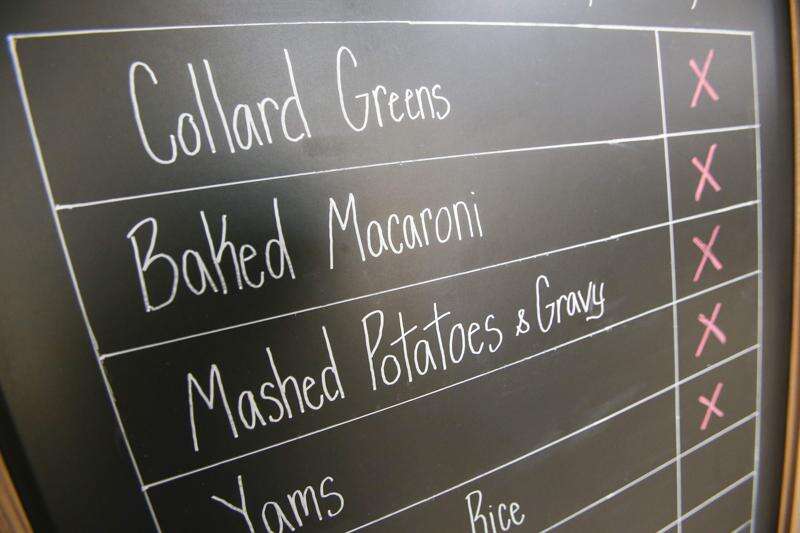 Collard Greens X
Baked Macaroni X
Mashed Potatoes & Gravy X
Yams X
Rice X